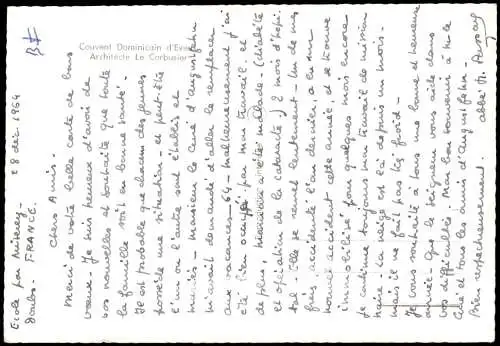 Couvent Dominicain d'Eveux
Architecte Le Corbusier
28 déc. 1964
Ecole par Miserey
Doubs. FRANCE.
Chers Amis.
Merci de votre belle carte de bons
vœux. Je suis heureux d'avoir de
vos nouvelles et souhaite que toute
la famille soit en bonne santé.
Il est probable que chacun des jeunes
possède une situation - et peut-être
l'un ou l'autre sont établis et
mariés - Monsieur le curé d'Augustfehn
m'avait demandé d'aller le remplacer
aux vacances 64 - malheureusement j'ai
été bien occupé par mon travail et
de plus, ma mère a été malade - (diabète
et opération de la cataracte) 2 mois d'hôpi-
tal - Elle se remet lentement - Un de mes
frères accidenté l'an dernier, a eu un
nouvel accident cette année, et se trouve
immobilisé pour quelques mois encore -
Je continue toujours mon travail de mission-
naire. La neige est là depuis un mois -
mais il ne fait pas très froid -
Je vous souhaite à tous une bonne et heureuse
année - Que le Seigneur vous aide dans
vos difficultés. Mon bon souvenir à M. le
Curé et tous les amis d'Augustfehn
Bien respectueusement. abbé